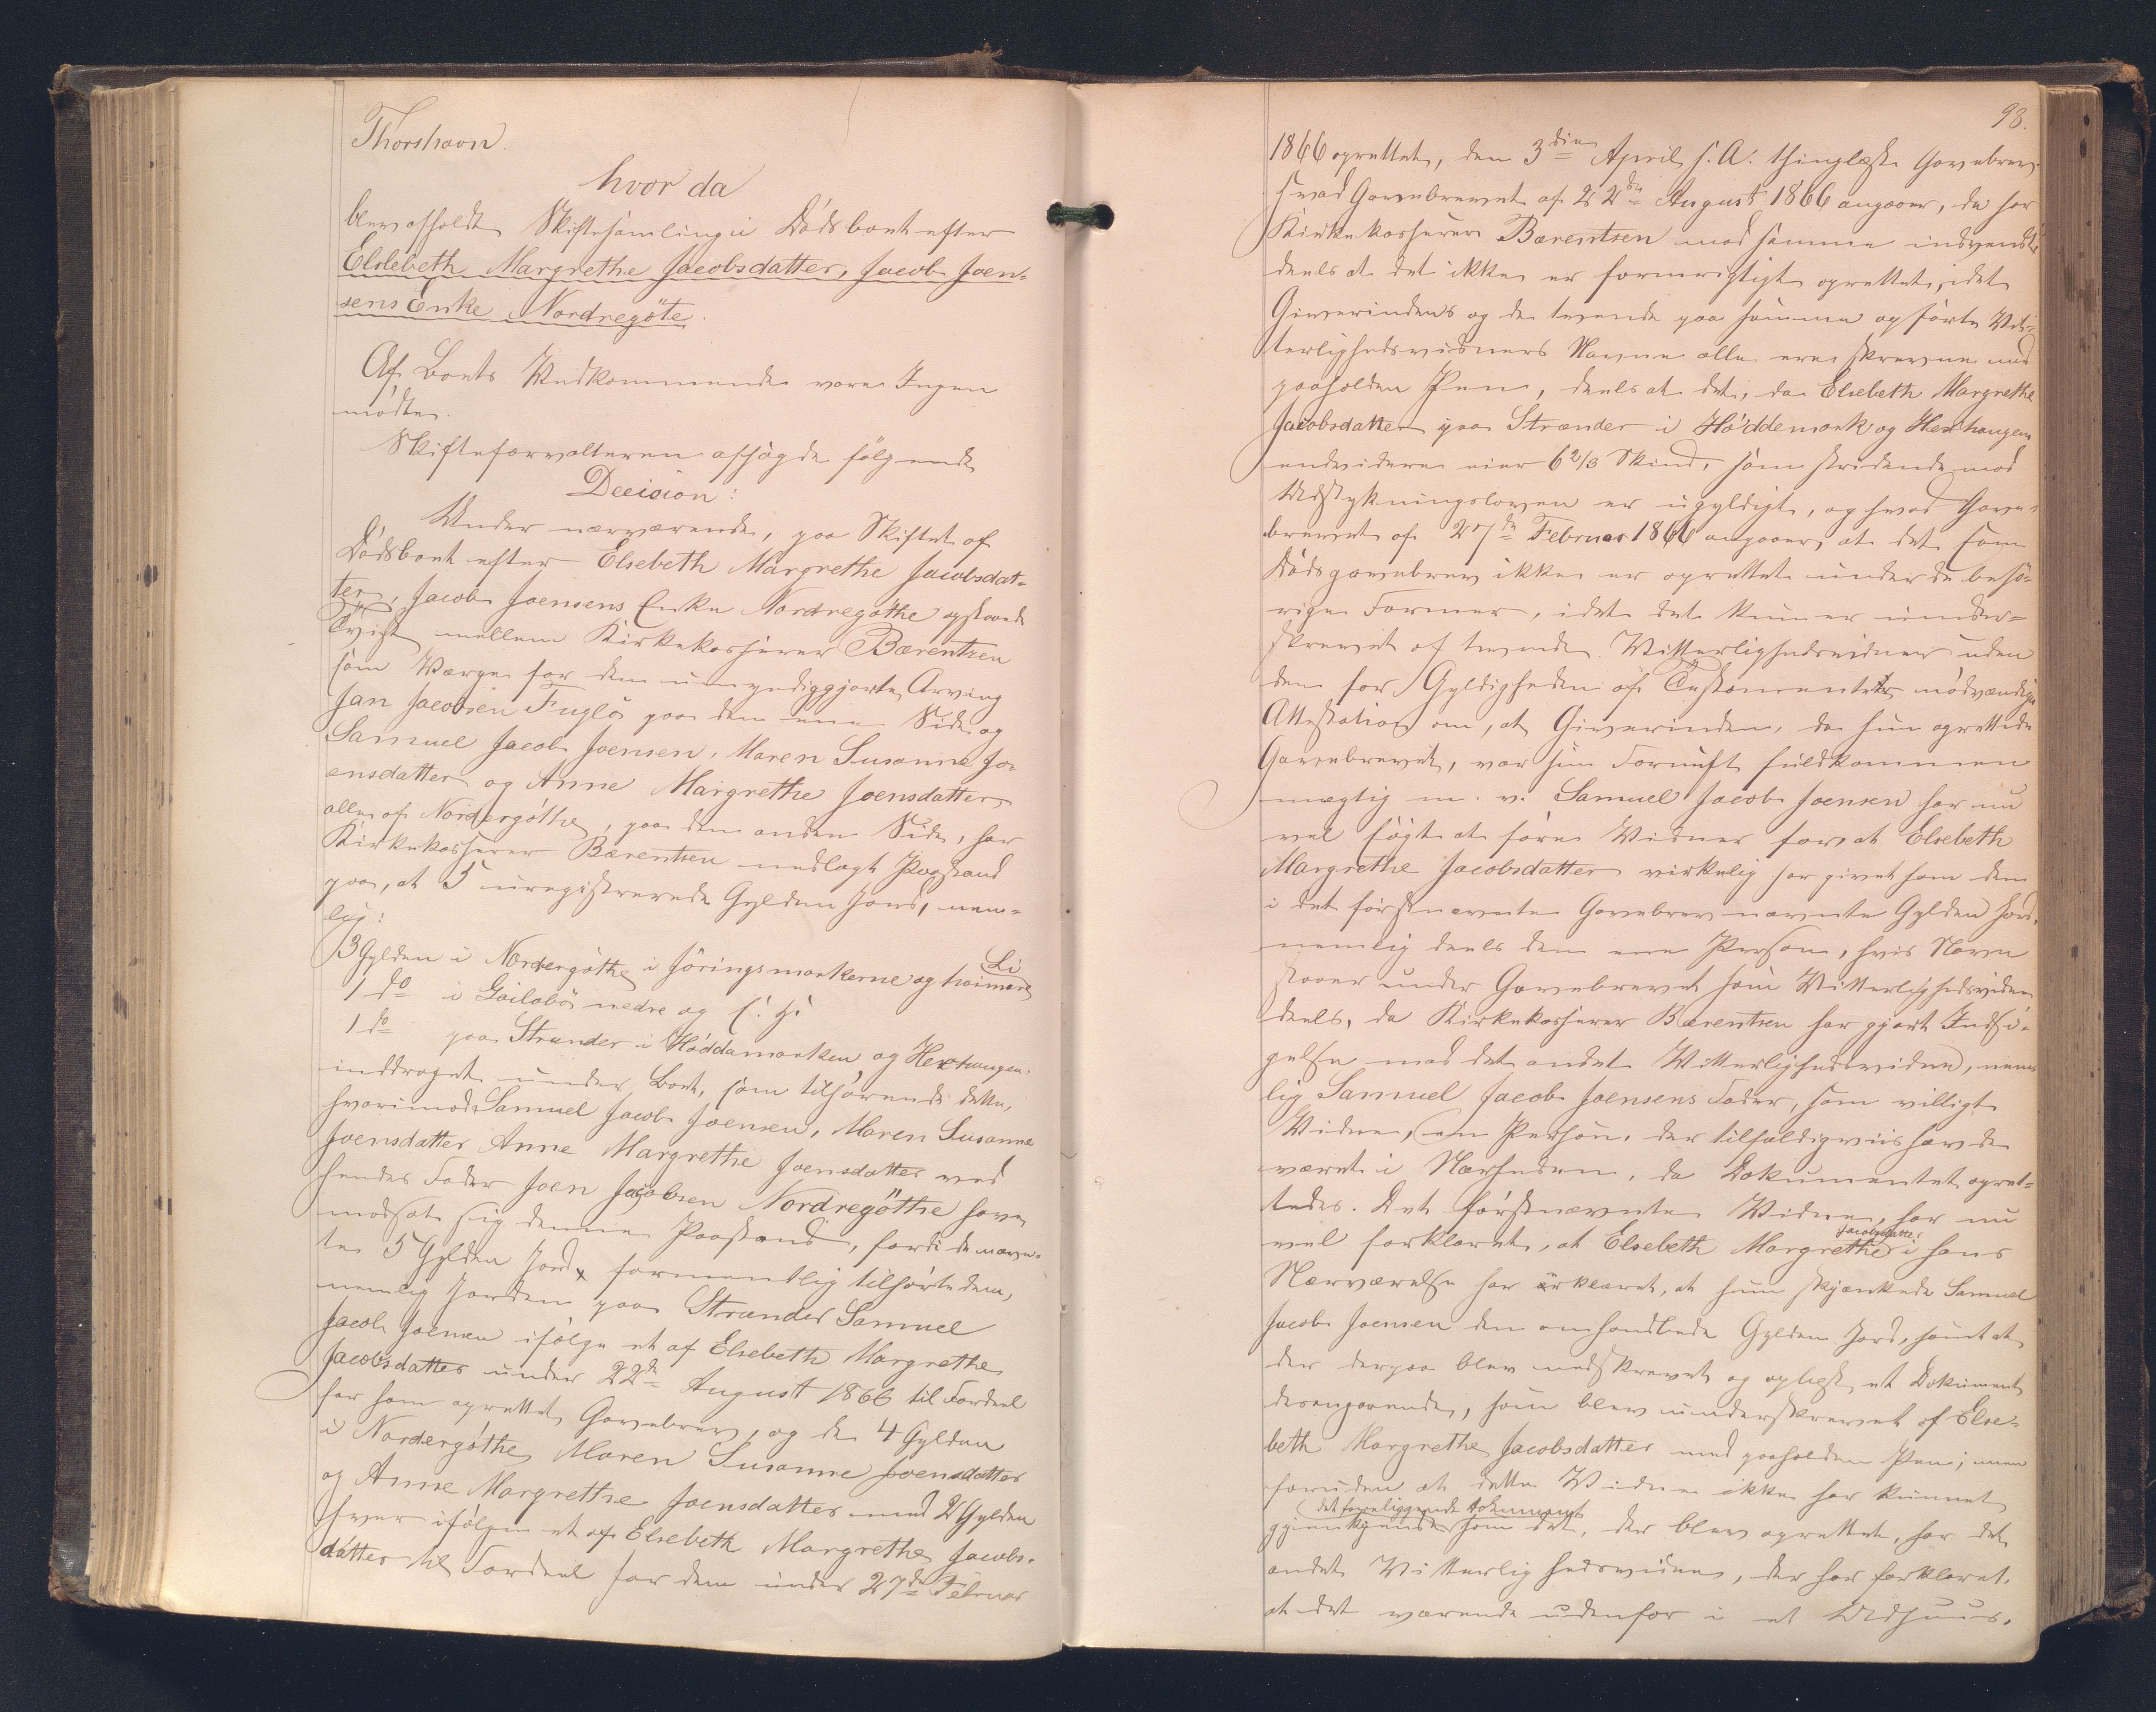 Thorshavn.
hvor da
blev afholdt Skiftesamling i Dødsboet efter
Elslebeth Margrethe Jacobsdatter, Jacob Joen-
sens Enke Nordregöte.
Af Boets Vedkommende vare Ingen
mødte.
Skifteforvalteren afsagde følgende
Decision:
Under nærværende, paa Skiftet af
Dødsboet efter Elsebeth Margrethe Jacobsdat-
ter, Jacob Joensens Enke Nordregøthe opstaaede
Tvist mellem Kirkekasserer Bærentsen
som Værge for den umyndiggjorte Arving
Jan Jacobsen Fuglö paa den ene Side og
Samuel Jacob Joensen, Maren Susanne Jo-
ensdatter og Anne Margrethe Joensdatter,
alle af Nordergøthe, paa den anden Side, har
Kirkekasserer Bærentsen nedlagt Paastand
paa, at 5 uregistrerede Gylden Jord, nem-
lig:
3 Gylden i Nordergøthe i Jöringsmarkerne og hoimare
Li
1 do i Gailabö nedre og
1 do paa Strander i Höddamarken og Hexhaugen.
inddraget under Boet, som tilhørende dette,
hvorimod Samuel Jacob Joensen, Maren Susanne
Joensdatter Anne Margrethe Joensdatter ved
hendes Fader Joen Jacobsen Nordregöthe have
modsat sig denne Paastand, fordi de nævn-
te 5 Gylden Jord formentlig tilhørte dem,
nemlig Jorden paa Strander Samuel
Jacob Joensen ifølge et af Elsebeth Margrethe
Jacobsdatter under 22de August 1866 til Fordeel
for ham oprettet Gavebrev, og de 4 Gylden
i Nordergøthe Maren Susanne Joensdatter
og Anne Margrethe Joensdatter med 2 Gylden
hver ifølge et af Elsebeth Margrethe Jacobs-
datter til Fordeel for dem under 27de Februar
98.
1866 oprettet, den 3die April s. A. thinglæst Gavebrev.
Hvad Gavebrevet af 22de August 1866 angaaer, da har
Kirkekasserer Bærentsen mod samme indvendt
deels at det ikke er formrigtigt oprettet, idet
Giverindens og de tvende paa samme opførte Vit-
terlighedsvidners Navne alle ere skrevne med
paaholden Pen, deels at det, da Elsebeth Margrethe
Jacobsdatter paa Strænder i Höddemark og Hexhaugen
endvidere eier 6 2/3 Skind, som stridende mod
Udstykningsloven er ugyldigt, og hvad Gave-
brevet af 27de Februar 1866 angaaer, at det som
Dødsgavebrev ikke er oprettet under de behø-
rige Former, idet det kun er under-
skrevet af tvende Vitterlighedsvidner uden
den for Gyldigheden af Testamenter nødvendige
Attestation om, at Giverinden, da hun oprettede
Gavebrevet, var sin Fornuft fuldkommen
mægtig m. v. Samuel Jacob Joensen har nu
vel søgt at føre Vidner for, at Elsebeth
Margrethe Jacobsdatter virkelig har givet ham den
i det førstnævnte Gavebrev nævnte Gylden Jord,
nemlig deels den ene Person, hvis Navn
staaer under Gavebrevet som Vitterlighedsvidne
deels, da Kirkekasserer Bærentsen har gjort Indsi-
gelse mod det andet Vitterlighedsvidne, nem-
lig Samuel Jacob Joensens Fader, som villigt
Vidne, en Person, der tilfældigviis havde
været i Nærheden, da Dokumentet opret-
tedes. Det førstnævnte Vidne, har nu
vel forklaret, at Elsebeth Margrethe Jacobsdatter i hans
Nærværelse har erklæret, at hun skjænkede Samuel
Jacob Joensen den omhandlede Gylden Jord, samt at
der derpaa blev nedskrevet og oplæst et Dokument
desangaaende, som blev underskrevet af Else-
beth Margrethe Jacobsdatter med paaholden Pen; men
foruden at dette Vidne ikke har kunnet
gjenkjende det foreliggende Dokument som det, der blev oprettet, har det
andet Vitterlighedsvidne, der har forklaret,
at det værende udenfor i et Udhuus,